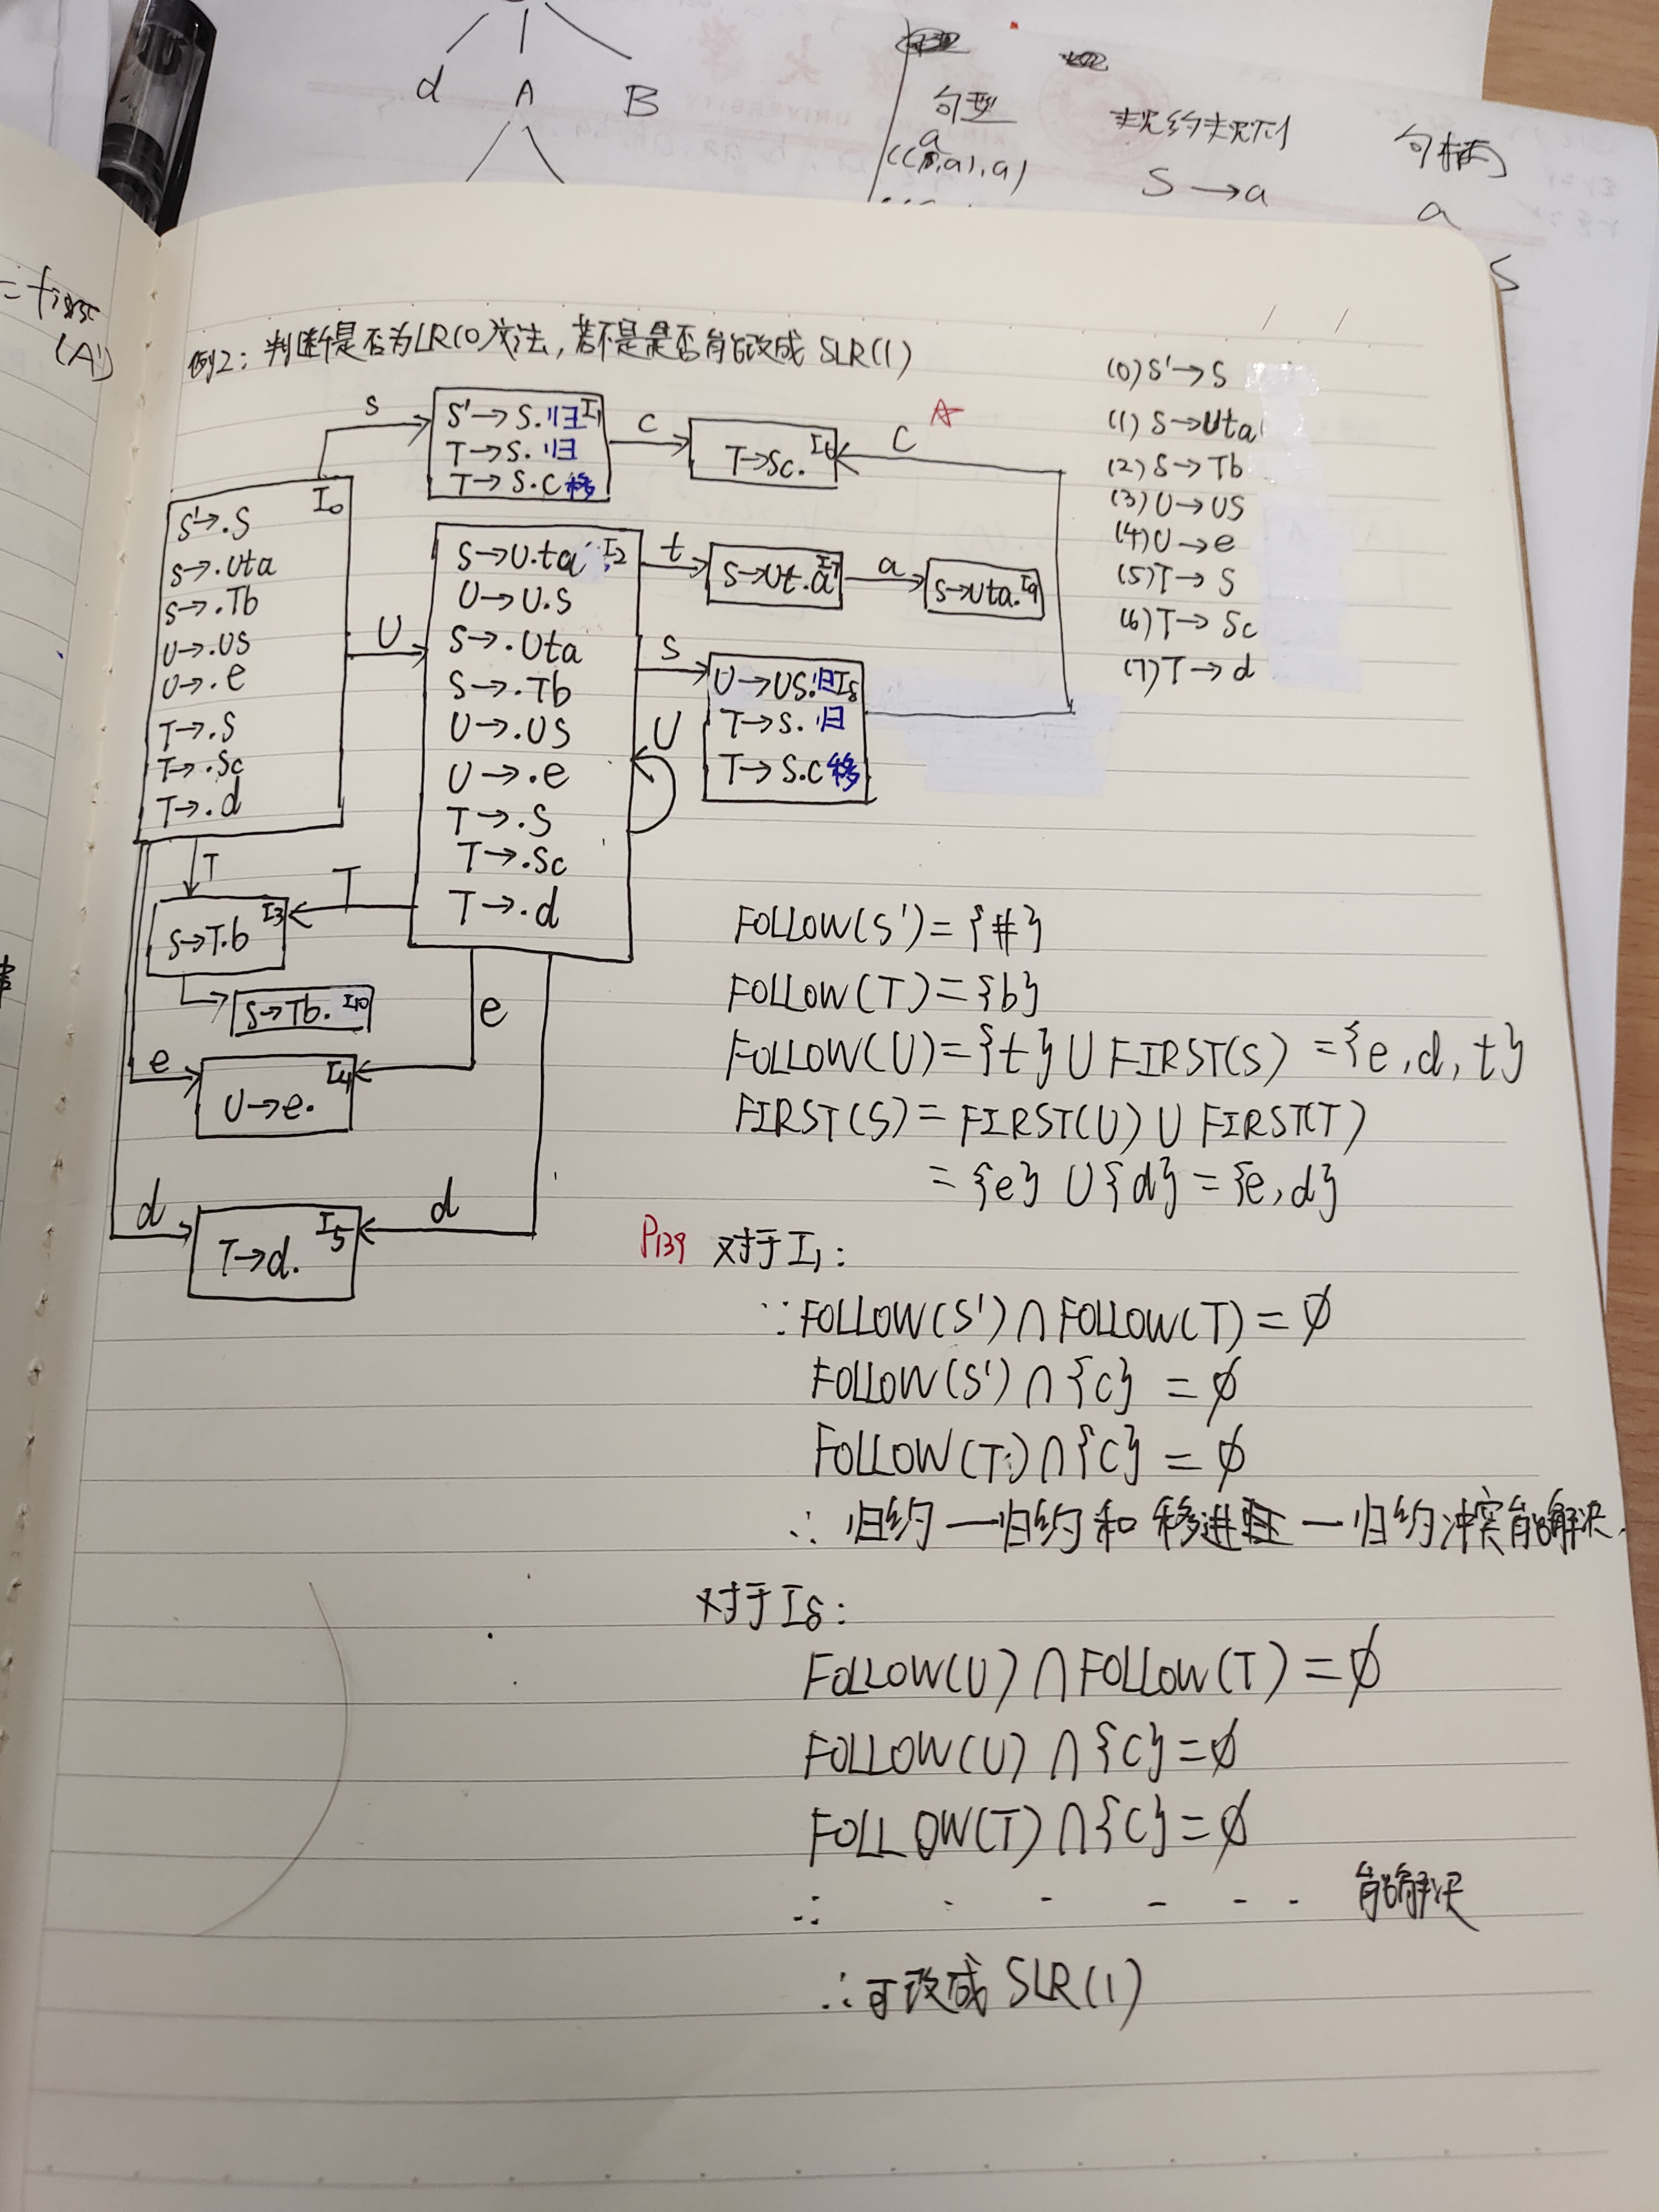 d A B
句型
a
((S,a),a)
S→a
a
=first
(A')
例2：判断是否为LR(0)文法，若不是是否能改成 SLR(1)
(0) S'→S
(1) S→Uta
(2) S→Tb
(3) U→US
(4) U→e
(5) T→S
(6) T→Sc
(7) T→d
S
S'→S. 归 I1
T→S. 归
T→S.c 移
c
T→Sc. I6
c
I0
S'→.S
S→.Uta
S→.Tb
U→.US
U→.e
T→.S
T→.Sc
T→.d
U
S→U.ta I2
U→U.S
S→.Uta
S→.Tb
U→.US
U→.e
T→.S
T→.Sc
T→.d
t
S→Ut.a I7
a
S→Uta. I9
S
U→US. 归 I8
T→S. 归
T→S.c 移
U
T
T
S→T.b I3
S→Tb. I10
e
e
U→e. I4
d
d
T→d. I5
FOLLOW(S')={#}
FOLLOW(T)={b}
FOLLOW(U)={t}∪FIRST(S)={e,d,t}
FIRST(S)=FIRST(U)∪FIRST(T)
={e}∪{d}={e,d}
P139 对于I1:
∵FOLLOW(S')∩FOLLOW(T)=∅
FOLLOW(S')∩{c}=∅
FOLLOW(T)∩{c}=∅
∴归约—归约和移进—归约冲突能解决.
对于I8:
FOLLOW(U)∩FOLLOW(T)=∅
FOLLOW(U)∩{c}=∅
FOLLOW(T)∩{c}=∅
∴ - - - - - 能解决
∴可改成 SLR(1)